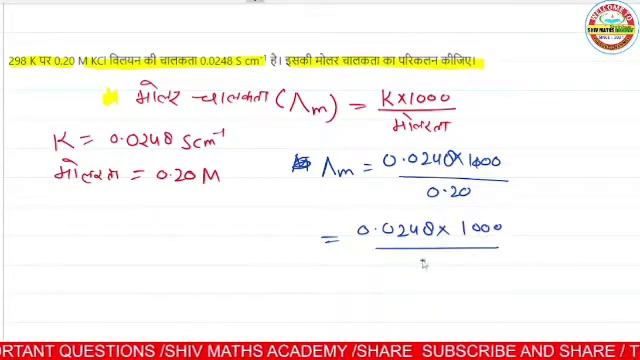 WELCOME TO
SHIV MATHS
ACADEMY
298 K पर 0.20 M KCl विलयन की चालकता 0.0248 S cm⁻¹ है। इसकी मोलर चालकता का परिकलन कीजिए।
मोलर चालकता (Λm) = K×1000
मोलरता
K = 0.0248 Scm⁻¹
मोलरता = 0.20 M
Λm = 0.0248×1000
0.20
= 0.0248× 1000
ORTANT QUESTIONS /SHIV MATHS ACADEMY /SHARE SUBSCRIBE AND SHARE / T